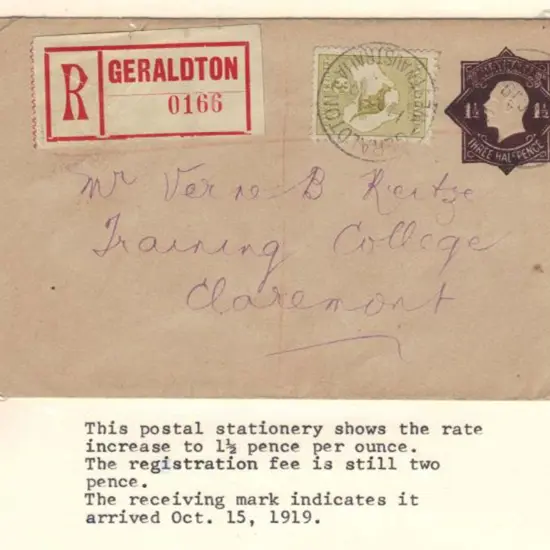 R
GERALDTON
0166
AUSTRALIA
GERALDTON
1½ 1½
THREE HALFPENCE
Mr Verne B Reitze
Training College
Claremont
This postal stationery shows the rate
increase to 1½ pence per ounce.
The registration fee is still two
pence.
The receiving mark indicates it
arrived Oct. 15, 1919.